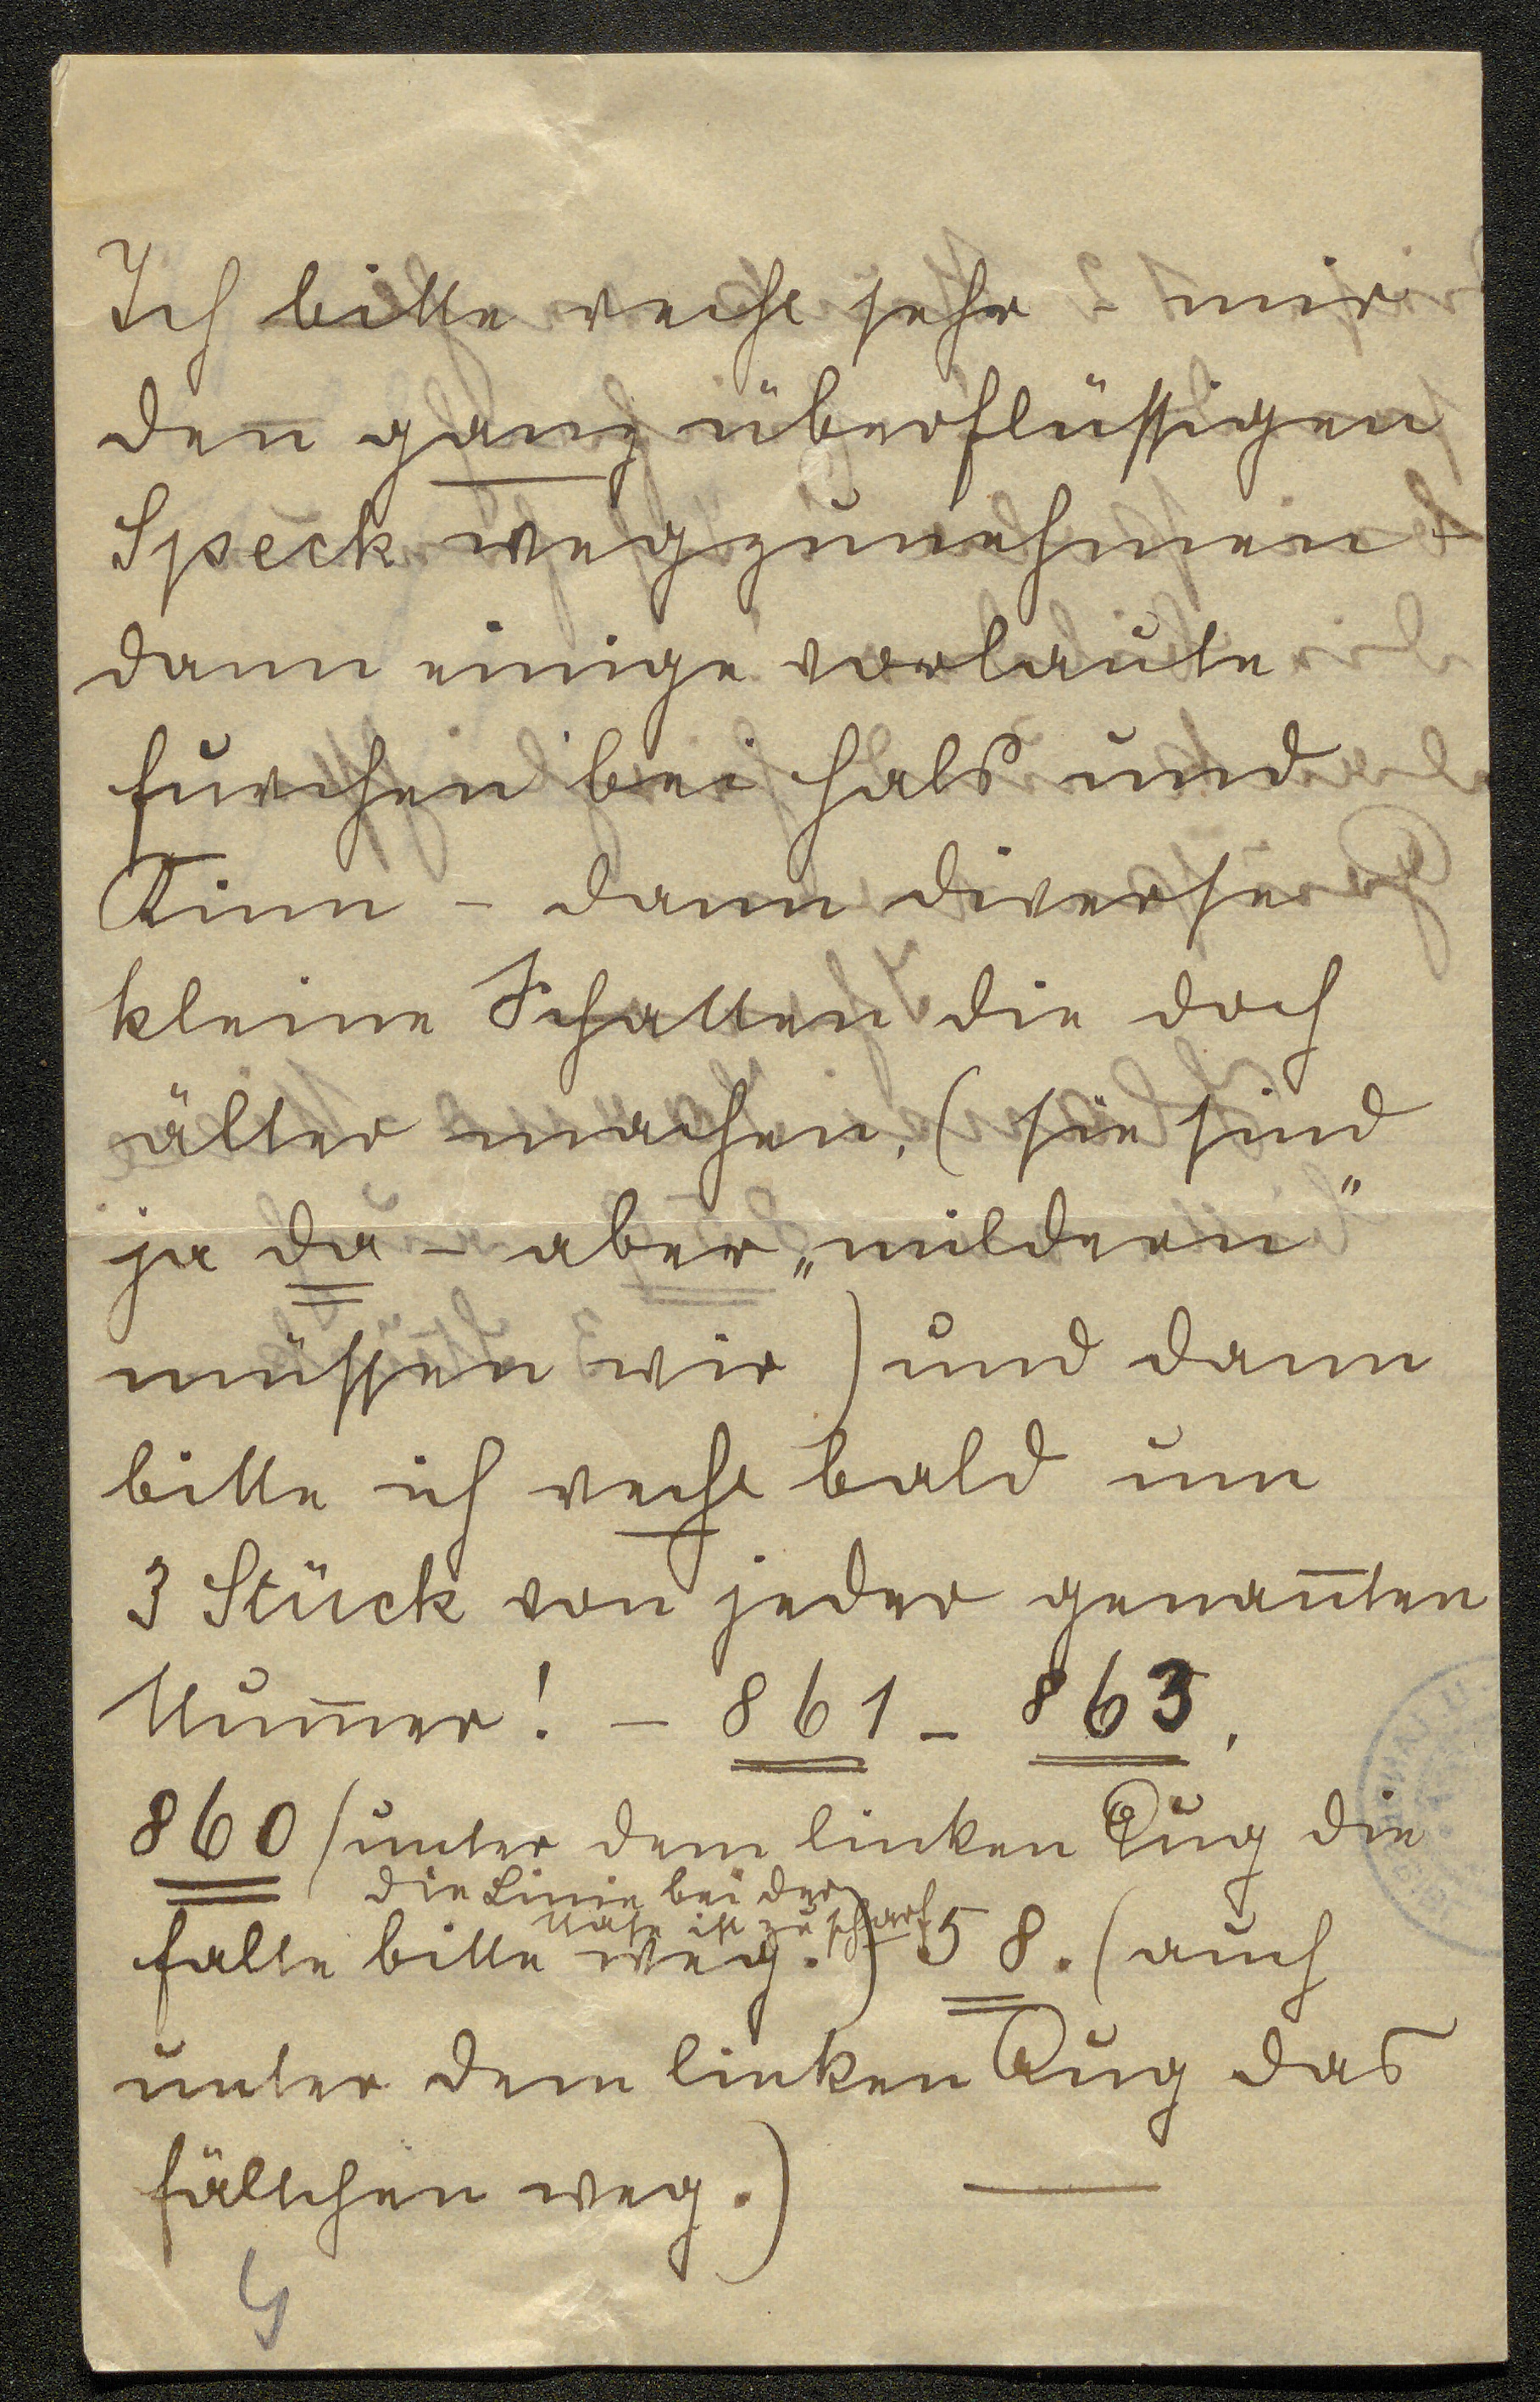 Ich bitte recht sehr – mir
den ganz überflüssigen
Speck wegzunehmen –
dann einige vorlaute
furchen bei Hals und
Kinn – dann diverse
kleine Schatten die doch
älter machen. (sie sind
ja da – aber „mildern"
müssen wir) und dann
bitte ich recht bald um
3 Stück von jeder genan̅ten
Num̅er! – 861 – 863.
860 (unter dem linken Aug die
die Linie bei der
Nase ist zu scharf
falte bitte weg.) 58. (auch
unter dem linken Aug das
fältchen weg.) —